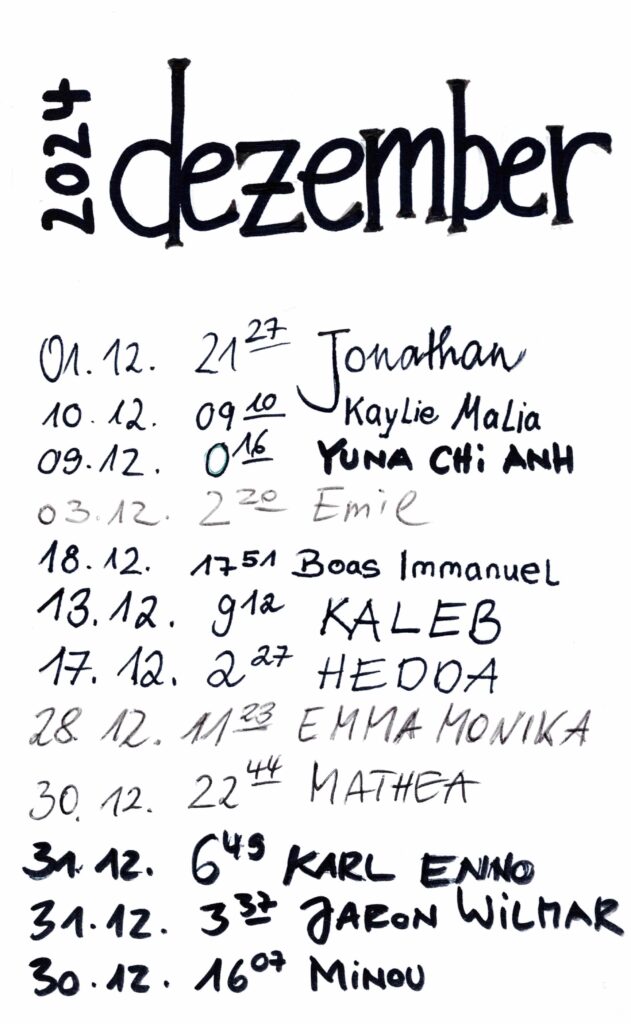 2024 dezember
01.12. 21 27 Jonathan
10.12. 09 10 Kaylie Malia
09.12. 0 16 YUNA CHi ANH
03.12. 2 20 Emil
18.12. 17 51 Boas Immanuel
13.12. 9 12 KALEB
17.12. 2 27 HEDDA
28.12. 11 23 EMMA MONIKA
30.12. 22 44 MATHEA
31.12. 6 45 KARL ENNO
31.12. 3 37 JARON WILMAR
30.12. 16 07 MINOU